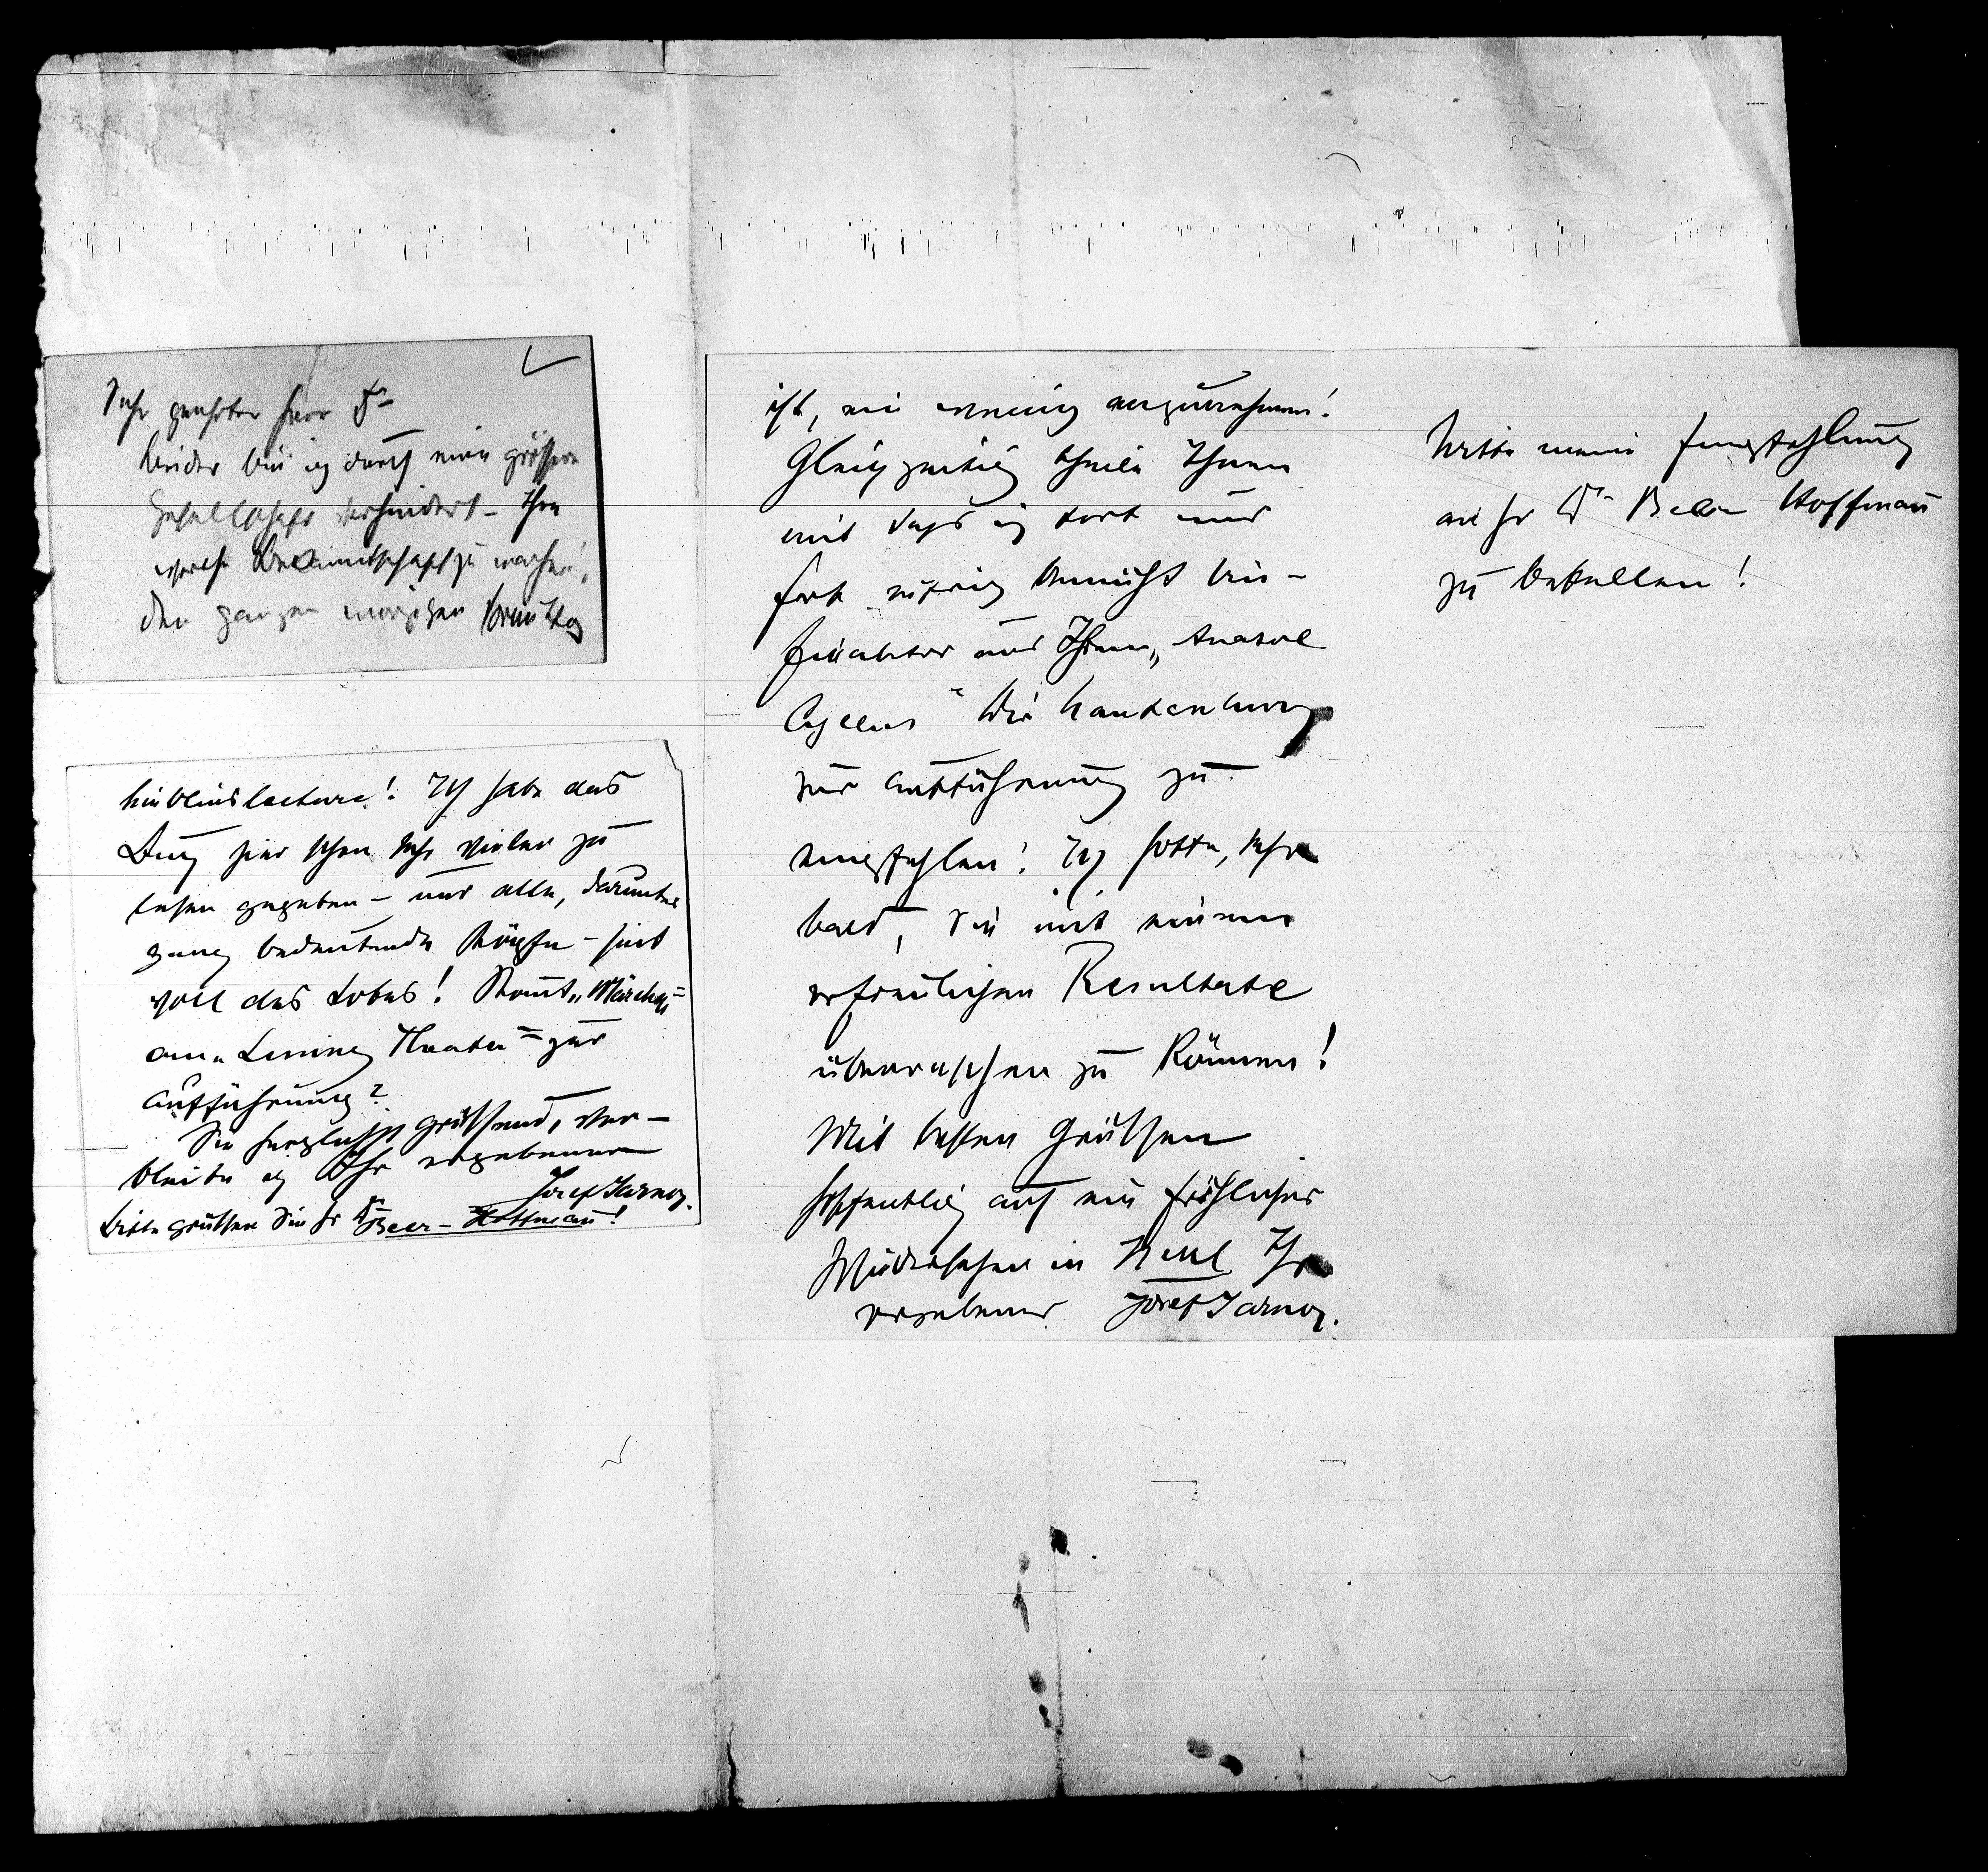 Sehr geehrter Herr Dr
Leider bin ich durch eine grössere
Gesellschaft verhindert – Ihre
werthe Bekanntschaft zu machen!
den ganzen morgigen Vormittag
lieblingslecture! Ich habe das
Buch hier schon sehr vielen zu
lesen gegeben – und alle, darunter
ganz bedeutende Köpfe – sind
voll des Lobes! Kommt „Märchen"
am „Lessing Theater" zur
Aufführung?
Sie herzlichst grüssend, ver-
bleibe ich Ihr ergebener
Josef Jarnoy.
Bitte grüssen Sie Hr Dr Beer-Hoffmann!
ist, ein wenig anzunehmen!
Gleichzeitig theile Ihnen
mit dass ich fort und
fort eifrig bemüht bin –
Einakter aus Ihrem „Anatol
Cyclus" die
zur Aufführung zu
empfehlen! Ich hoffe, sehr
bald, Sie mit einem
erfreulichen Resultate
überraschen zu können!
Mit besten Grüssen
hoffentlich auf ein fröhliches
Wiedersehen in Ischl Ihr
ergebener Josef Jarnoy.
Bitte meine Empfehlung
an Hr Dr Beer Hoffmann
zu bestellen!